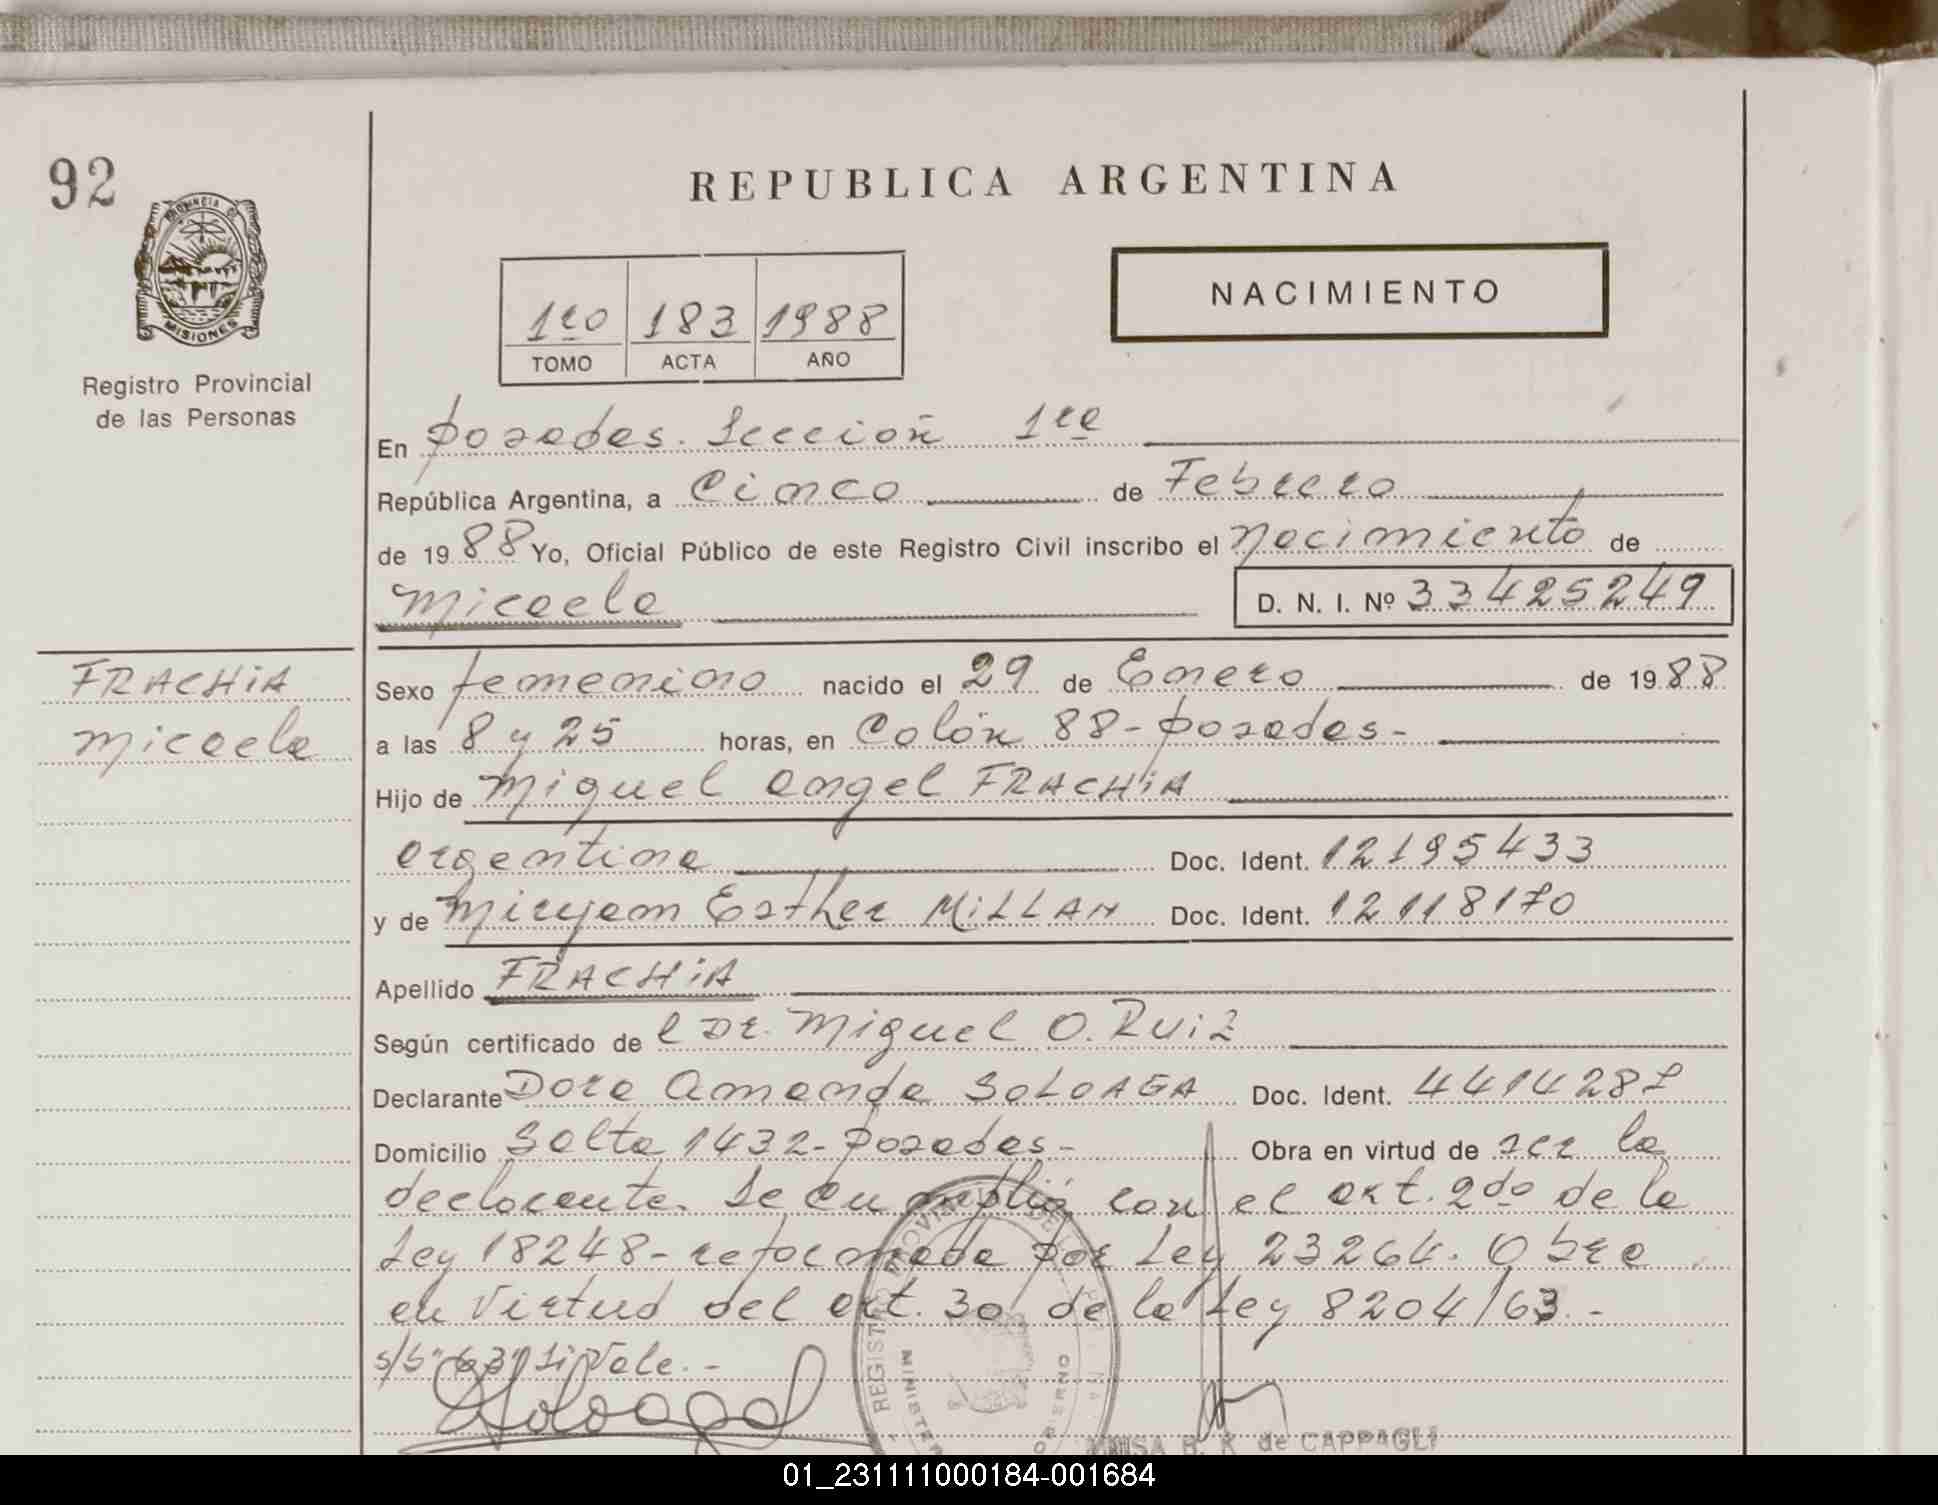 92
PROVINCIA DE
MISIONES
Registro Provincial
de las Personas
REPUBLICA ARGENTINA
1ro 183 1988
TOMO ACTA AÑO
NACIMIENTO
En Posadas. Sección 1ra
República Argentina, a Cinco de Febrero
de 1988 Yo, Oficial Público de este Registro Civil inscribo el Nacimiento de
Micaela D. N. I. Nº 33425249
FRACHiA
Micaela
Sexo femenino nacido el 29 de Enero de 1988
a las 8 y 25 horas, en Colón 88 - Posadas -
Hijo de Miguel Angel FRACHiA
argentina Doc. Ident. 12195433
y de Miryam Esther MiLLAN Doc. Ident. 12118170
Apellido FRACHiA
Según certificado de l Dr. Miguel O. Ruiz
Declarante Dora Amanda SOLOAGA Doc. Ident. 4414287
Domicilio Salta 1432 - Posadas - Obra en virtud de ser la
declarante. Se cumplió con el art. 2do de la
Ley 18248 - reformada por Ley 23264. Obra
en virtud del art. 30 de la Ley 8204/63. -
s/b "63" Si Vale. -
REGISTRO PROVINCIAL DE
MINISTER
GOBIERNO
B. K. de CAPPAGLI
01_231111000184-001684